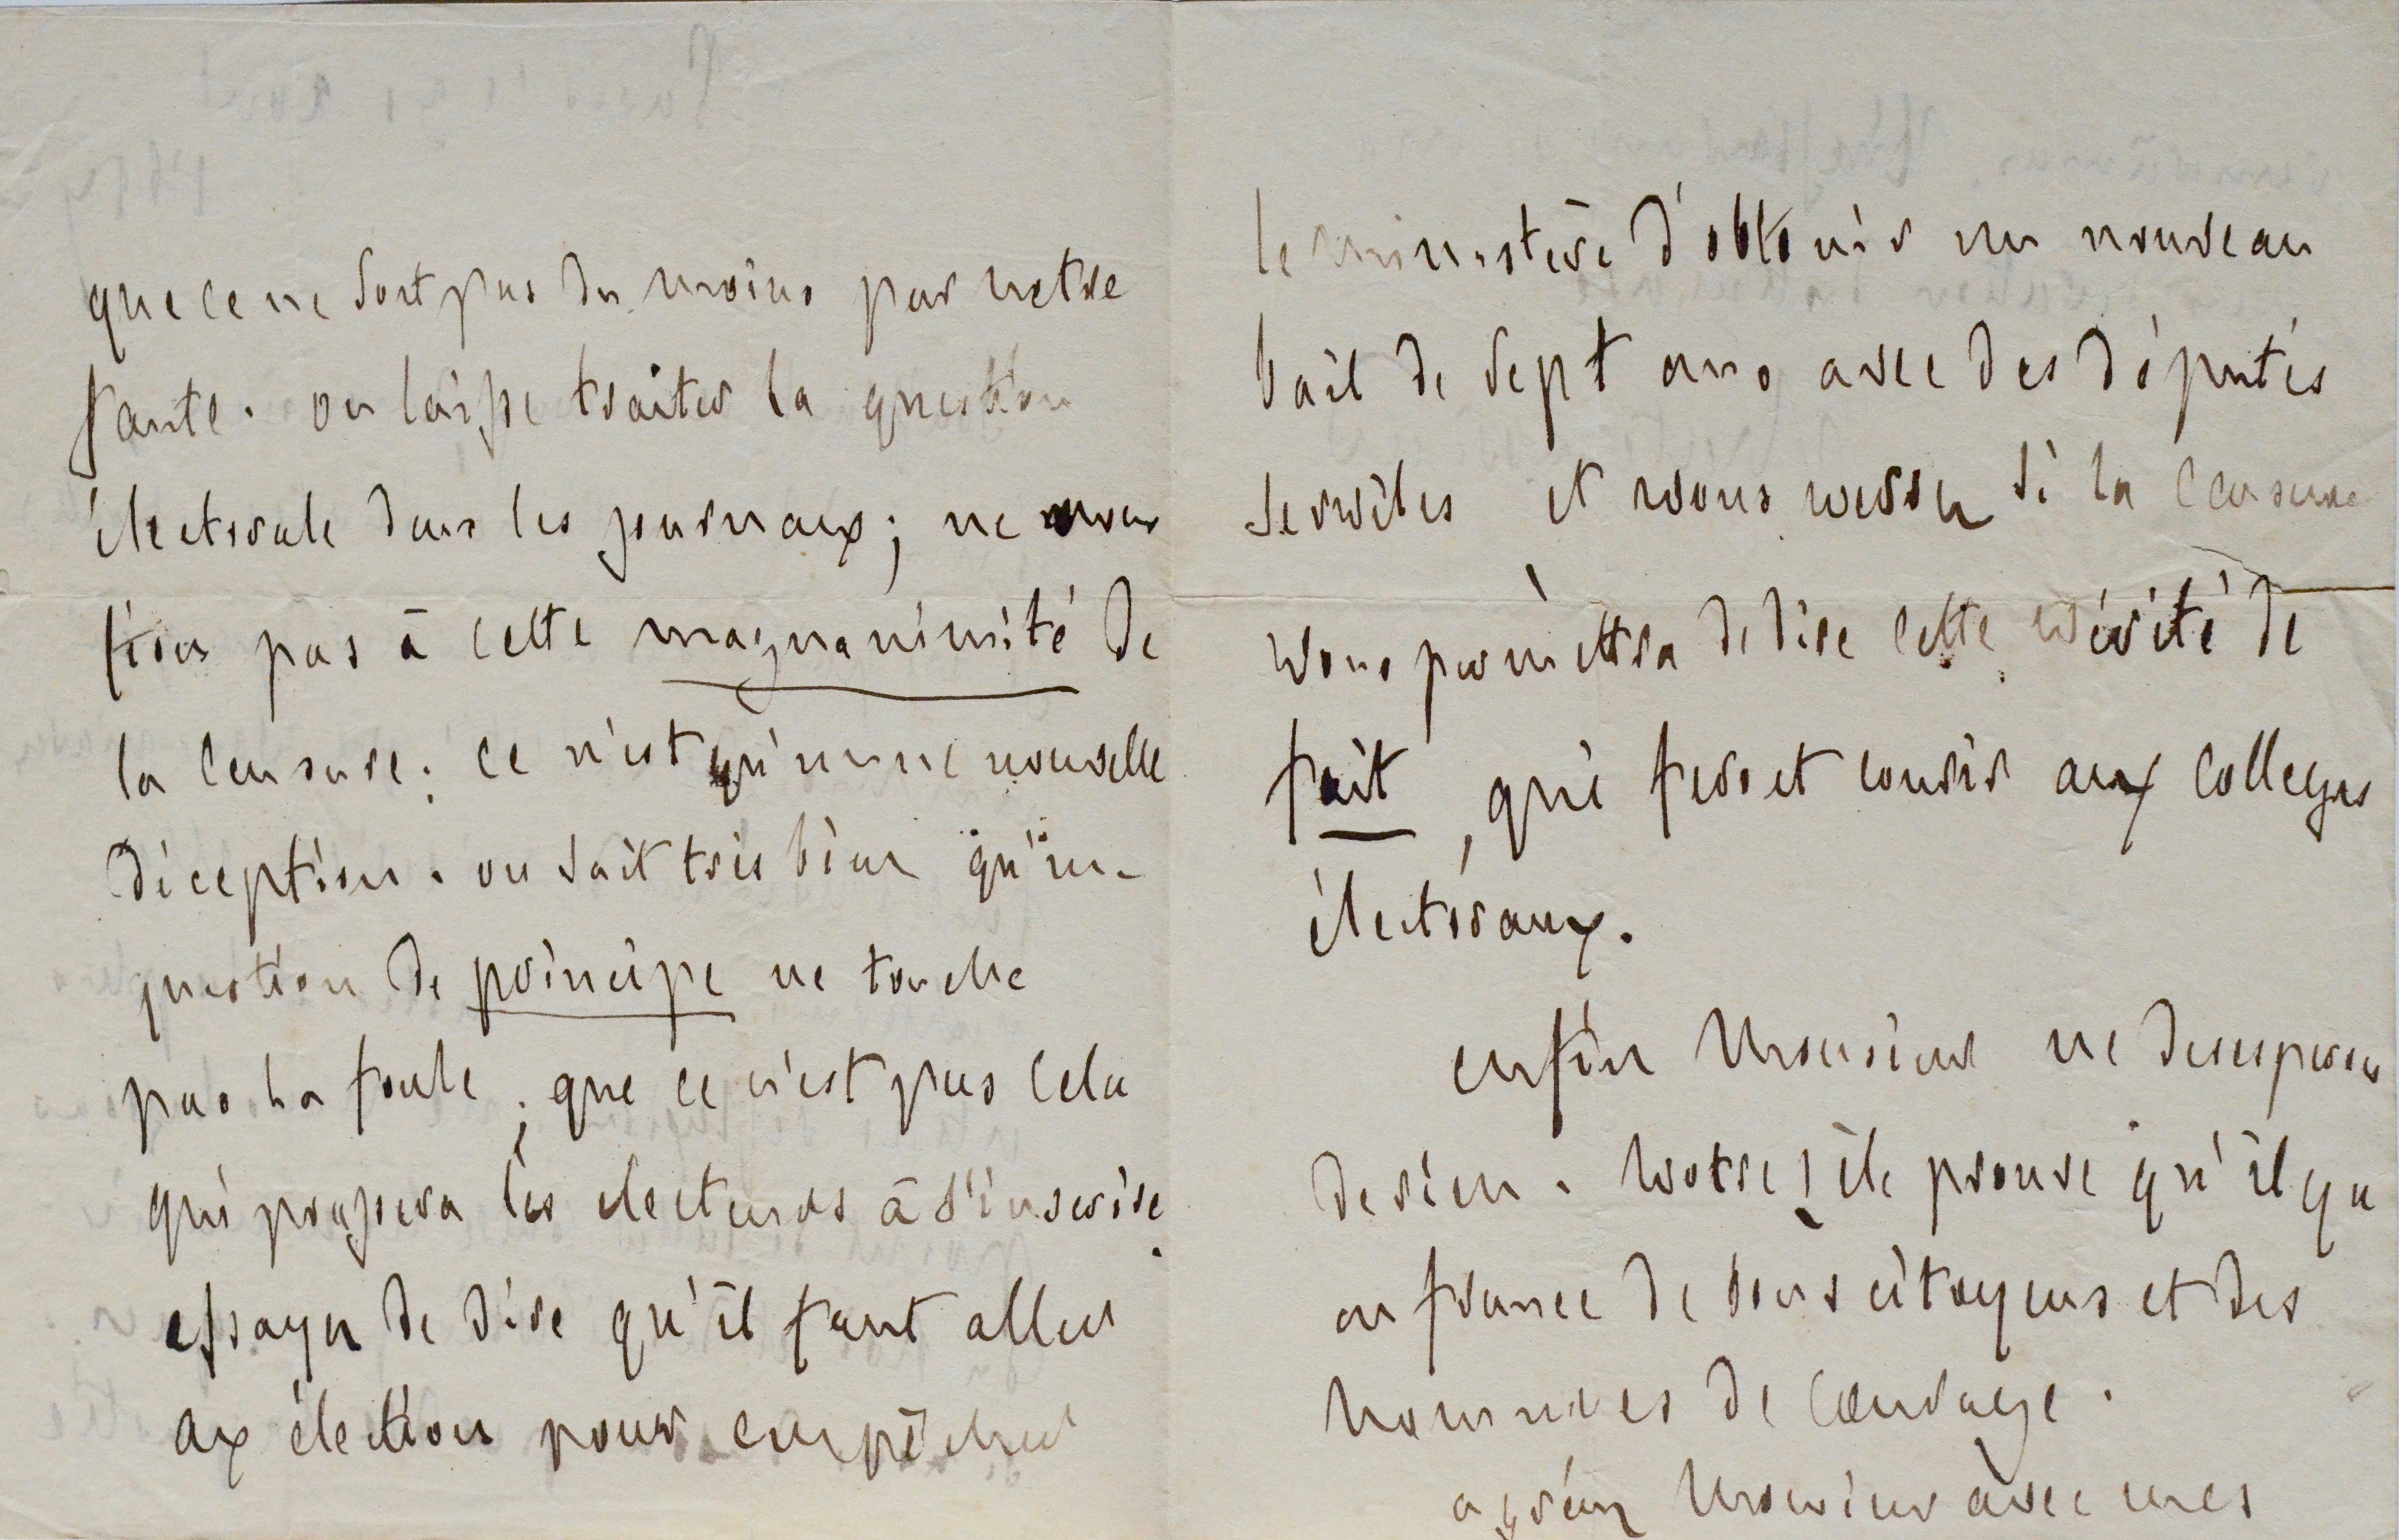 que ce ne soit pas du moins par notre
faute. on laisse traiter la question
électorale dans les journaux; ne vous
fiez pas à cette magnanimité de
la censure; ce n'est qu'une nouvelle
déception. on sait très bien qu'une
question de principe ne touche
pas la foule; que ce n'est pas cela
qui pressera les electeurs à s'inscrire.
essayez de dire qu'il faut aller
aux élection pour empêcher
le ministère d'obtenir un nouveau
bail de sept ans avec des députés
serviles et vous verrez si la censure
vous permettra de dire cette vérité de
fait, qui feroit courir aux colleges
électoraux.
enfin Monsieur ne desesperez
de rien. Votre zèle prouve qu'il y a
en france de bons citoyens et des
hommes de courage.
agréez Monsieur avec mes